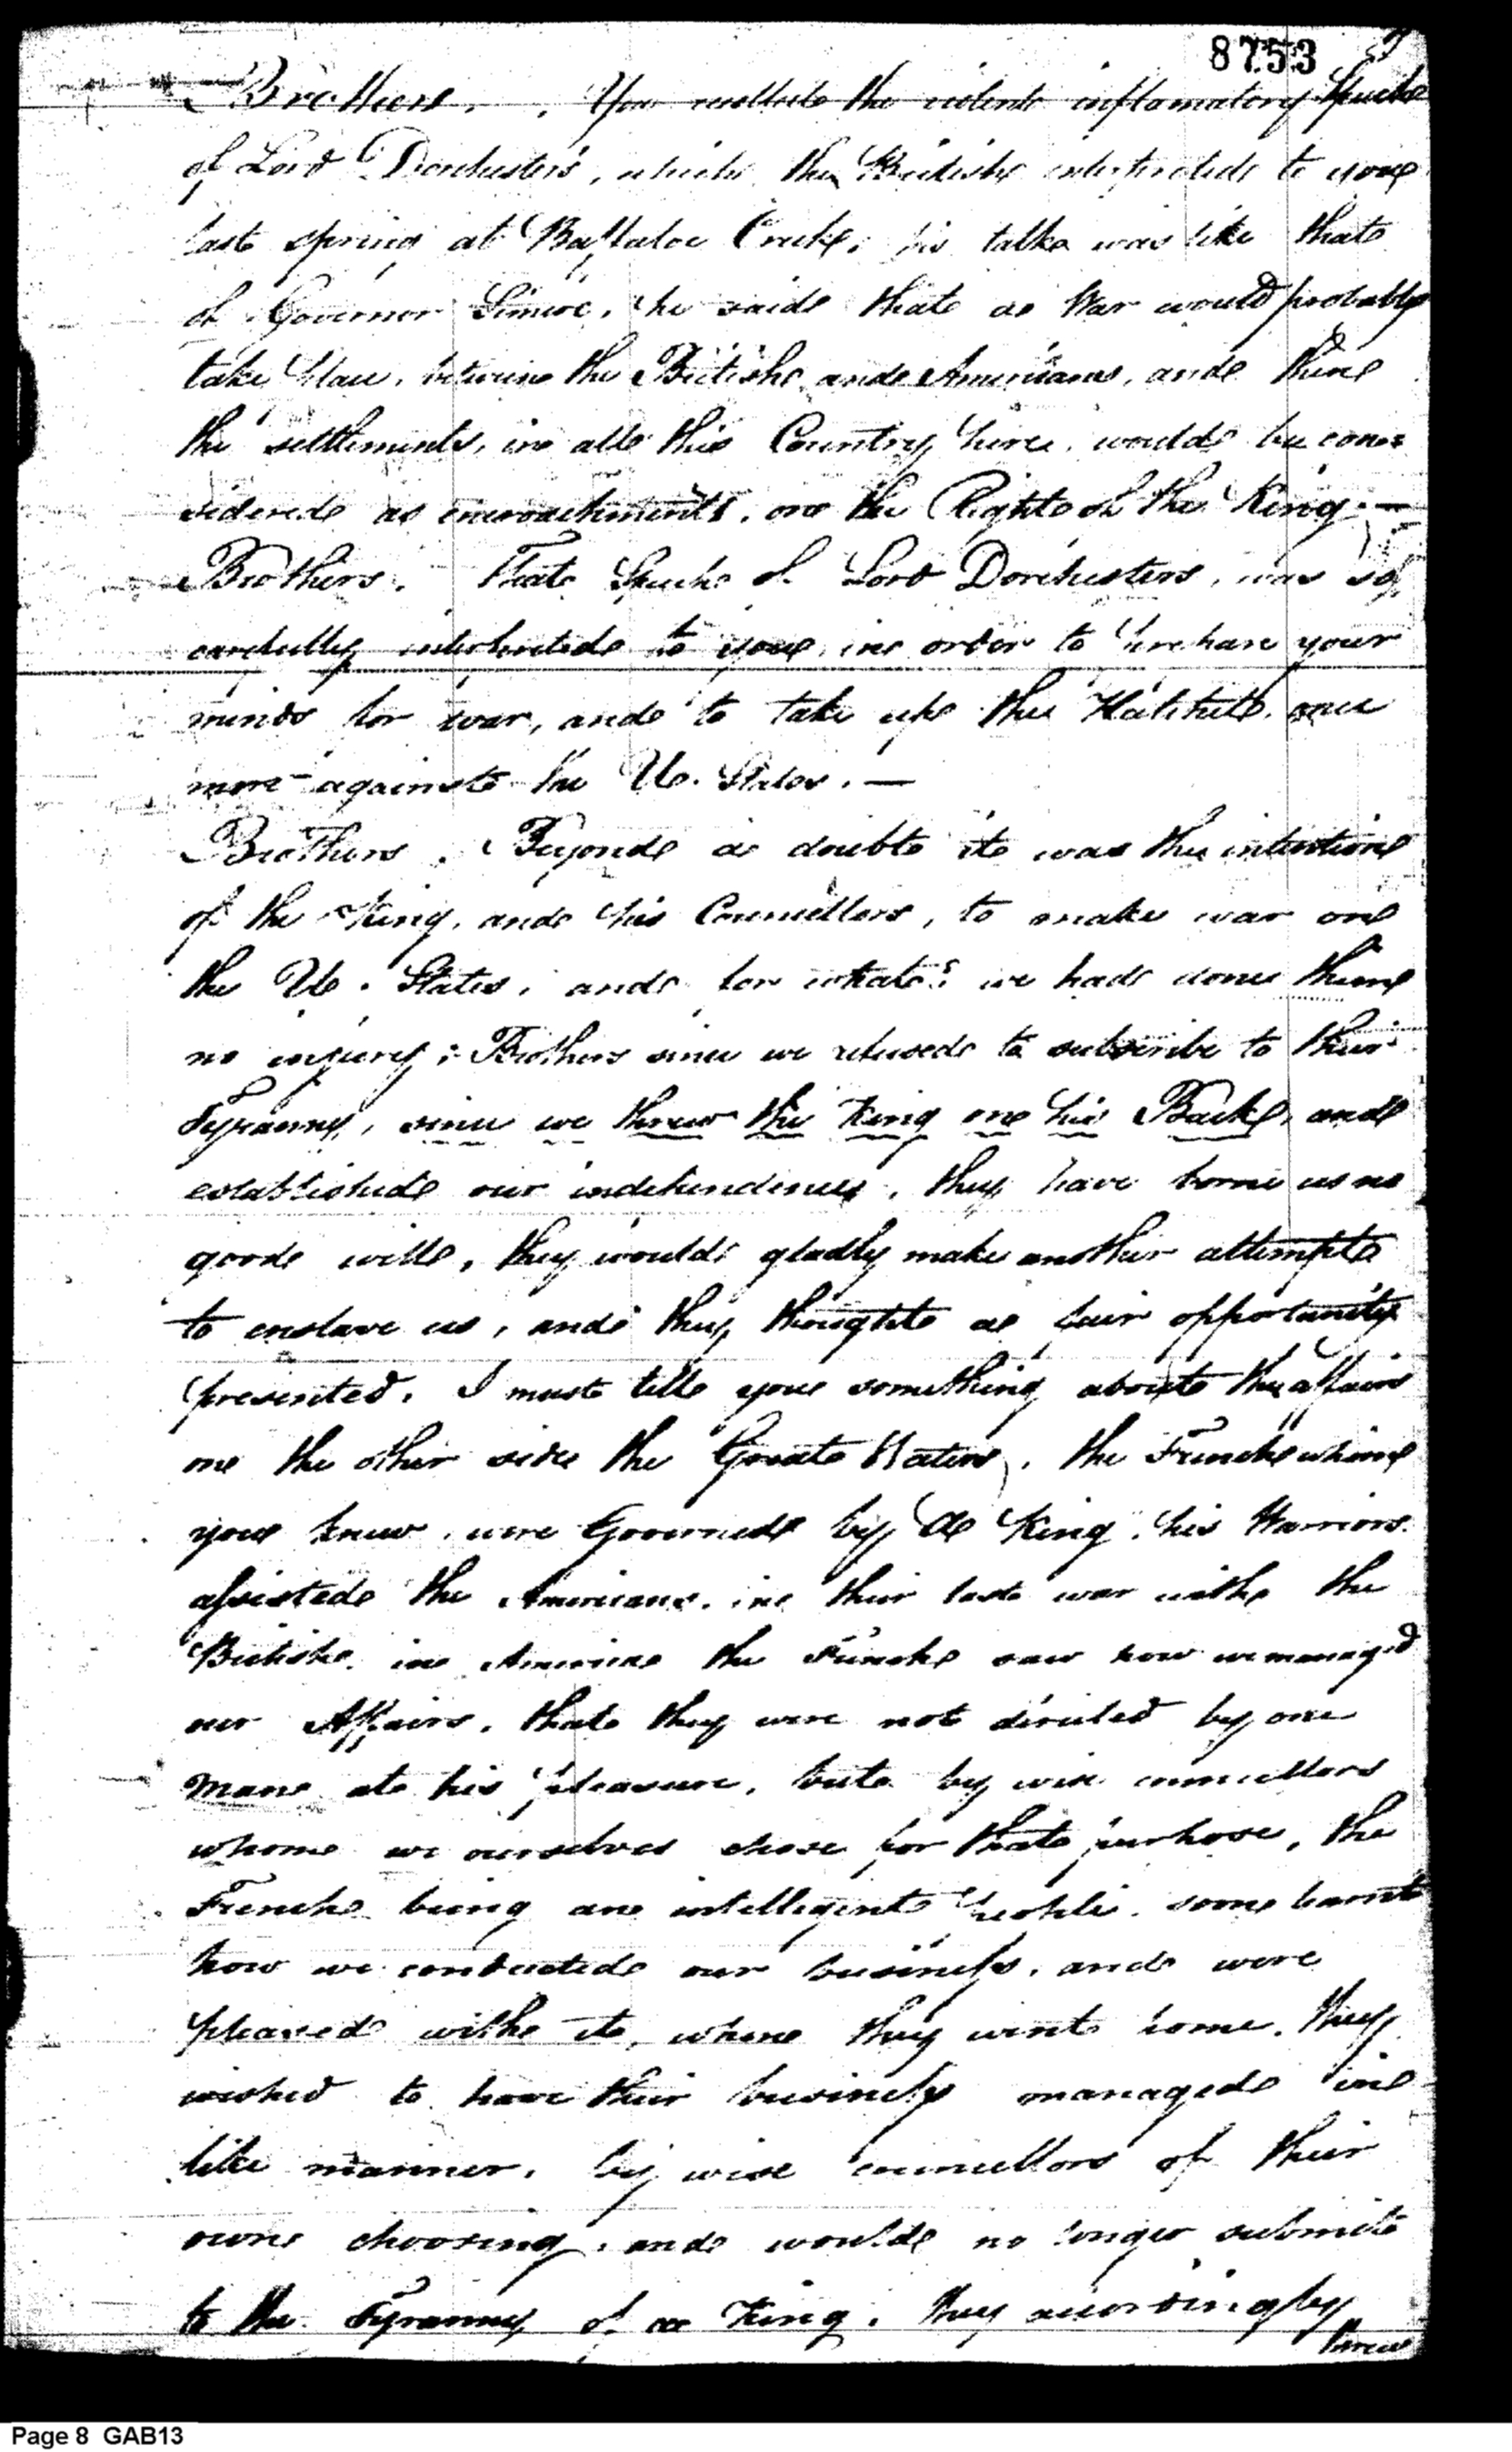 8753
Brothers. You recollect the violent inflamatory Speech
of Lord Dorchester's, which the British interpreted to you
last spring at Buffaloe Creek, his talk was like that
of Governor Simcoe, he said that a War would probably
take place, between the British and Americans, and then
the settlements, in all this Country here, would be con=
sidered as encroachments, on the Rights of the King.—
Brothers. That Speech of Lord Dorchesters, was so
carefully interpreted to you in order to prepare your
minds for war, and to take up the Hatchett, once
more against the U. States.—
Brothers. Beyond a doubt it was the intention
of the King, and his Councellors, to make war on
the U. States, and for what? we had done them
no injury; Brothers since we refused to subscribe to their
Tyranny, since we threw the King on his Back, and
established our independence, they have borne us no
good will, they would gladly make another attempt
to enslave us, and they thought a fair opportunity
presented. I must tell you something about the affairs
on the other side the Great Waters, the French whom
you knew were Governed by a King, his Warriors
assisted the Americans, in their last war with the
British in America the French saw how we manag'd
our Affairs, that they were not directed by one
Man at his pleasure, but by wise councellors
whom we ourselves chose for that purpose, the
French being an intelligent people, soon learnt
how we conducted our business, and were
pleased with it, when they went home, they
wished to have their business managed in
like manner, by wise councellors of their
own choosing, and would no longer submit
to the Tyranny of a King, they accordingly
threw
Page 8 GAB13